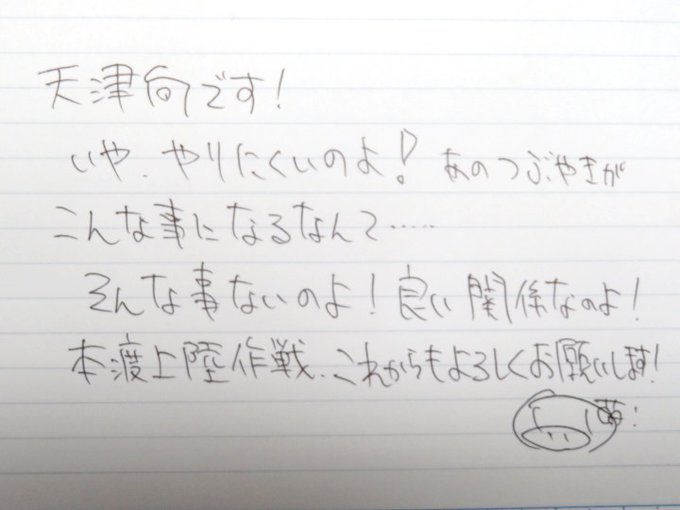 天津向です!
いや、やりにくいのよ! あのつぶやきが
こんな事になるなんて……
そんな事ないのよ!良い関係なのよ!
本渡上陸作戦、これからもよろしくお願いします!